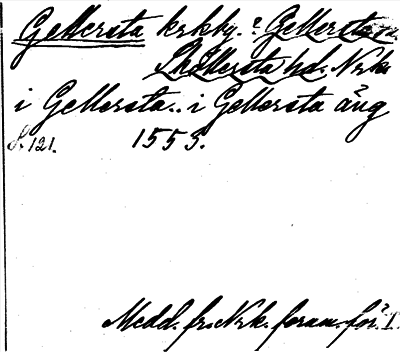 Gellersta krkby. ? Gellersta sn
Sköllersta hd. Nrke
i Gellersta.. i Gellersta äng
S. 121. 1553.
Medd. fr. Nrk. fornm. för. I.